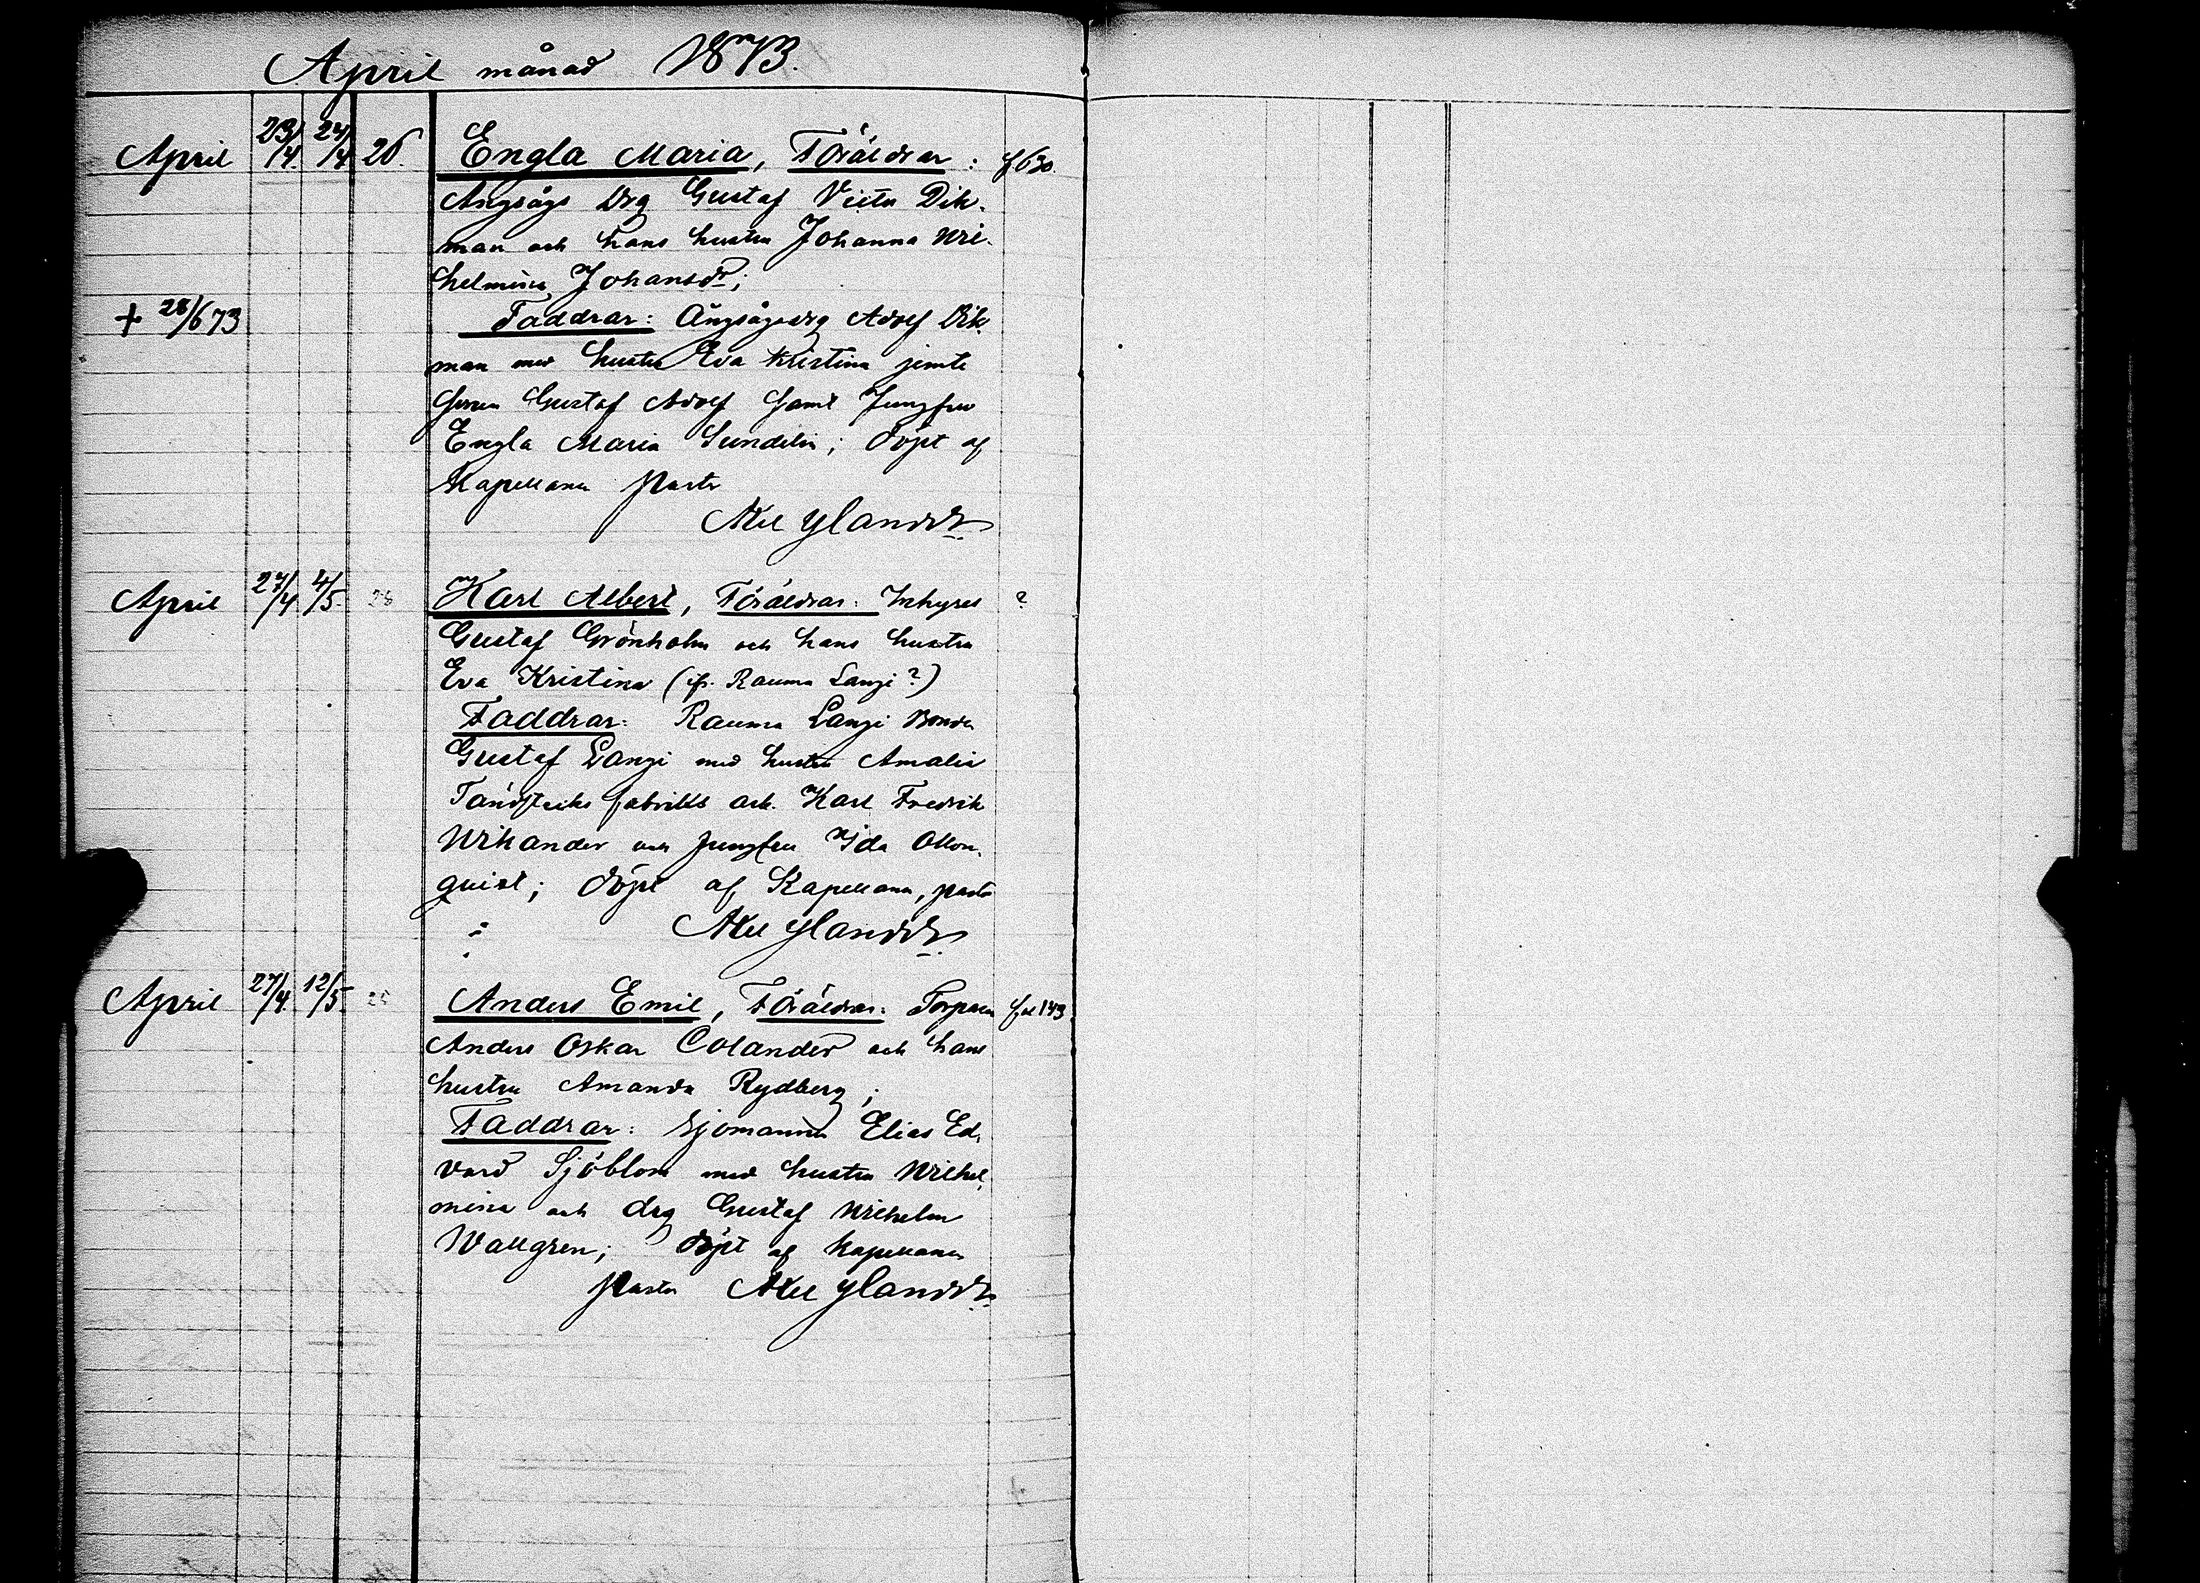 April månad 1873.
April 23/4 24/4 26. Engla Maria, Föräldrar: f 630.
Ångsågs Drg Gustaf Victor Dik-
man och hans hustru Johanna Wil-
helmina Johansdr;
+ 28/6 73 Faddrar: Ångsågsdrg Adolf Dik-
man med hustru Eva Kristina jemte
Gustaf Adolf samt Jungfru
Engla Maria Sundelin; döpt af
Kapellanen Pastor
Axel Ylander
April 27/4 4/5. 28 Karl Albert, Föräldrar: Inhyses ?
Gustaf Grönholm och hans hustru
Eva Kristina (ifr. Rauma Lanzi?)
Faddrar: Rauma Lanzi Bonden
Gustaf Lanzi med hustru Amalia
Tändsticks fabriks arb. Karl Fredrik
Wikander och Jungfru Ida
quist; döpt af Kapellanen, pastor
Axel Ylander
April 27/4. 12/5. Anders Emil, Föräldrar: Torparen fol 143
Anders Oskar Colander och hans
hustru Amanda Rydberg;
Faddrar: Sjömannen Elias Ed-
vard Sjöblom med hustru Wilhel-
mina och drg Gustaf Wilhelm
Wallgren; döpt af Kapellanen
Pastor Axel Ylander